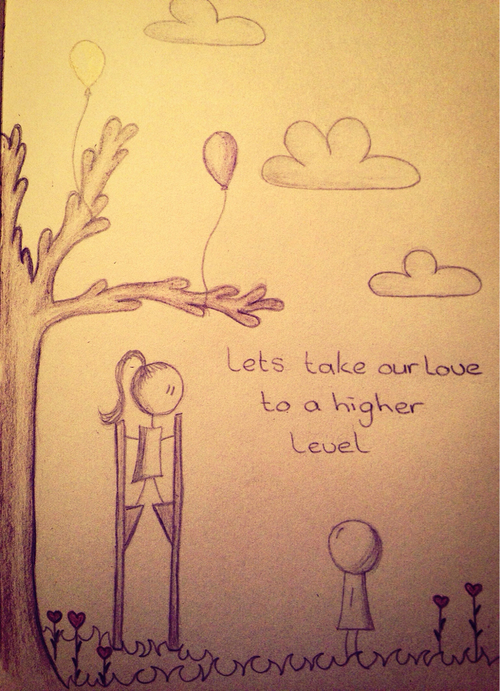 Lets take our love
to a higher
level